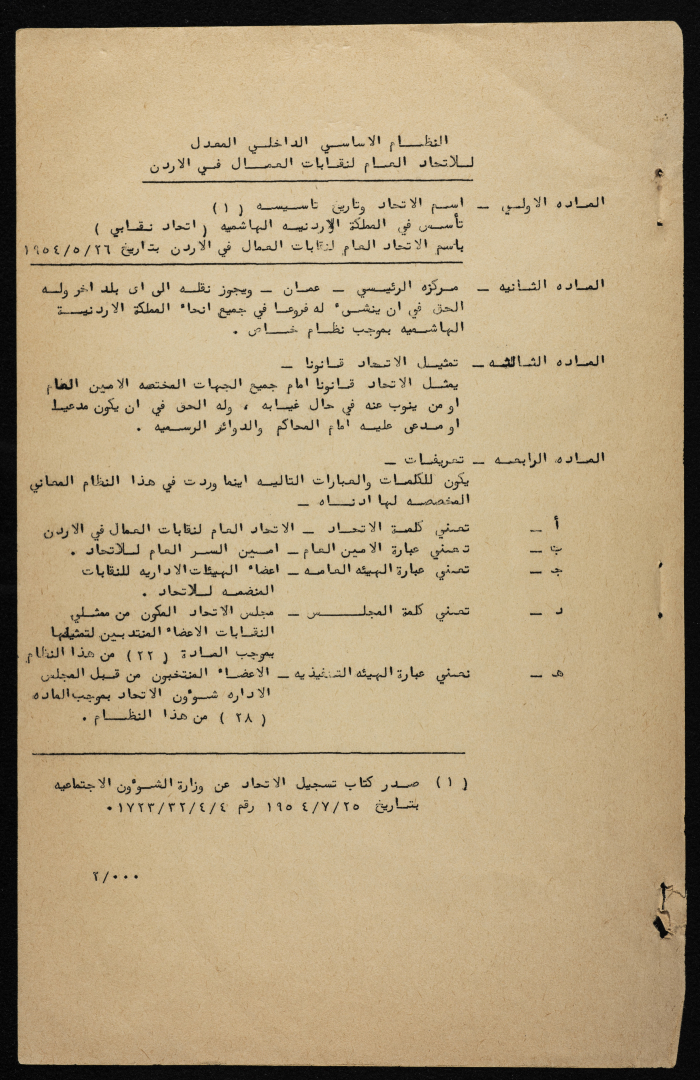 النظام الاساسي الداخلي المعدل
للاتحاد العام لنقابات العمال في الاردن
الماده الاولى – اسم الاتحاد وتاريخ تاسيسه (١)
تأسس في المملكة الاردنيه الهاشميه ( اتحاد نقابي )
باسم الاتحاد العام لنقابات العمال في الاردن بتاريخ ١٩٥٤/٥/٢٦
الماده الثانيه – مركزه الرئيسي – عمان – ويجوز نقله الى اى بلد اخر وله
الحق في ان ينشىء له فروعا في جميع انحاء المملكة الاردنية
الهاشميه بموجب نظام خاص .
الماده الثالثه – تمثيل الاتحاد قانونا –
يمثل الاتحاد قانونا امام جميع الجهات المختصه الامين العام
او من ينوب عنه في حال غيابه ، وله الحق في ان يكون مدعيا
او مدعى عليه امام المحاكم والدوائر الرسميه .
الماده الرابعه – تعريفات –
يكون للكلمات والعبارات التاليه اينما وردت في هذا النظام المعاني
المخصصه لها ادناه –
أ – تعني كلمة الاتحاد – الاتحاد العام لنقابات العمال في الاردن
ب – تعني عبارة الامين العام – امين السر العام للاتحاد .
ج – تعني عبارة الهيئه العامه – اعضاء الهيئات الاداريه للنقابات
المنضمه للاتحاد .
د – تعني كلمة المجلس – مجلس الاتحاد المكون من ممثلي
النقابات الاعضاء المنتدبين لتمثيلها
بموجب المادة ( ٢٢ ) من هذا النظام
هـ – تعني عبارة الهيئه التنفيذيه – الاعضاء المنتخبون من قبل المجلس
الاداره شوءون الاتحاد بموجب الماده
( ٢٨ ) من هذا النظام .
(١) صدر كتاب تسجيل الاتحاد عن وزارة الشوءون الاجتماعيه
بتاريخ ١٩٥٤/٧/٢٥ رقم ١٧٢٣/٣٢/٤/٤٠
٢/٠٠٠